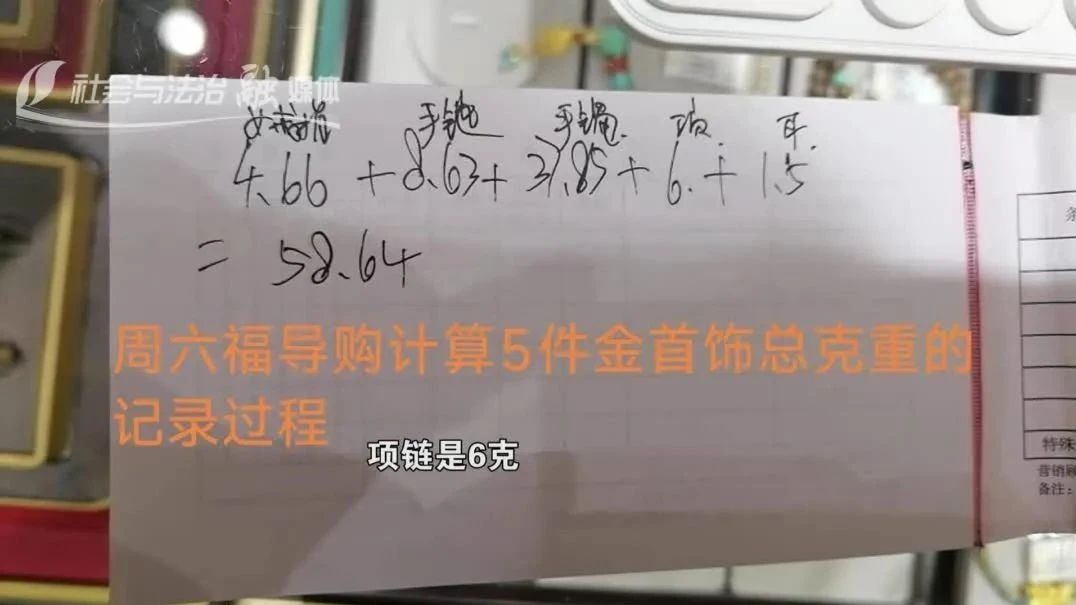 社会与法治 融媒体
女戒指 手链 手镯 项 耳.
4.66 + 8.63 + 37.85 + 6. + 1.5
= 58.64
条
周六福导购计算5件金首饰总克重的
记录过程
特殊
项链是6克
营销顾
备注: